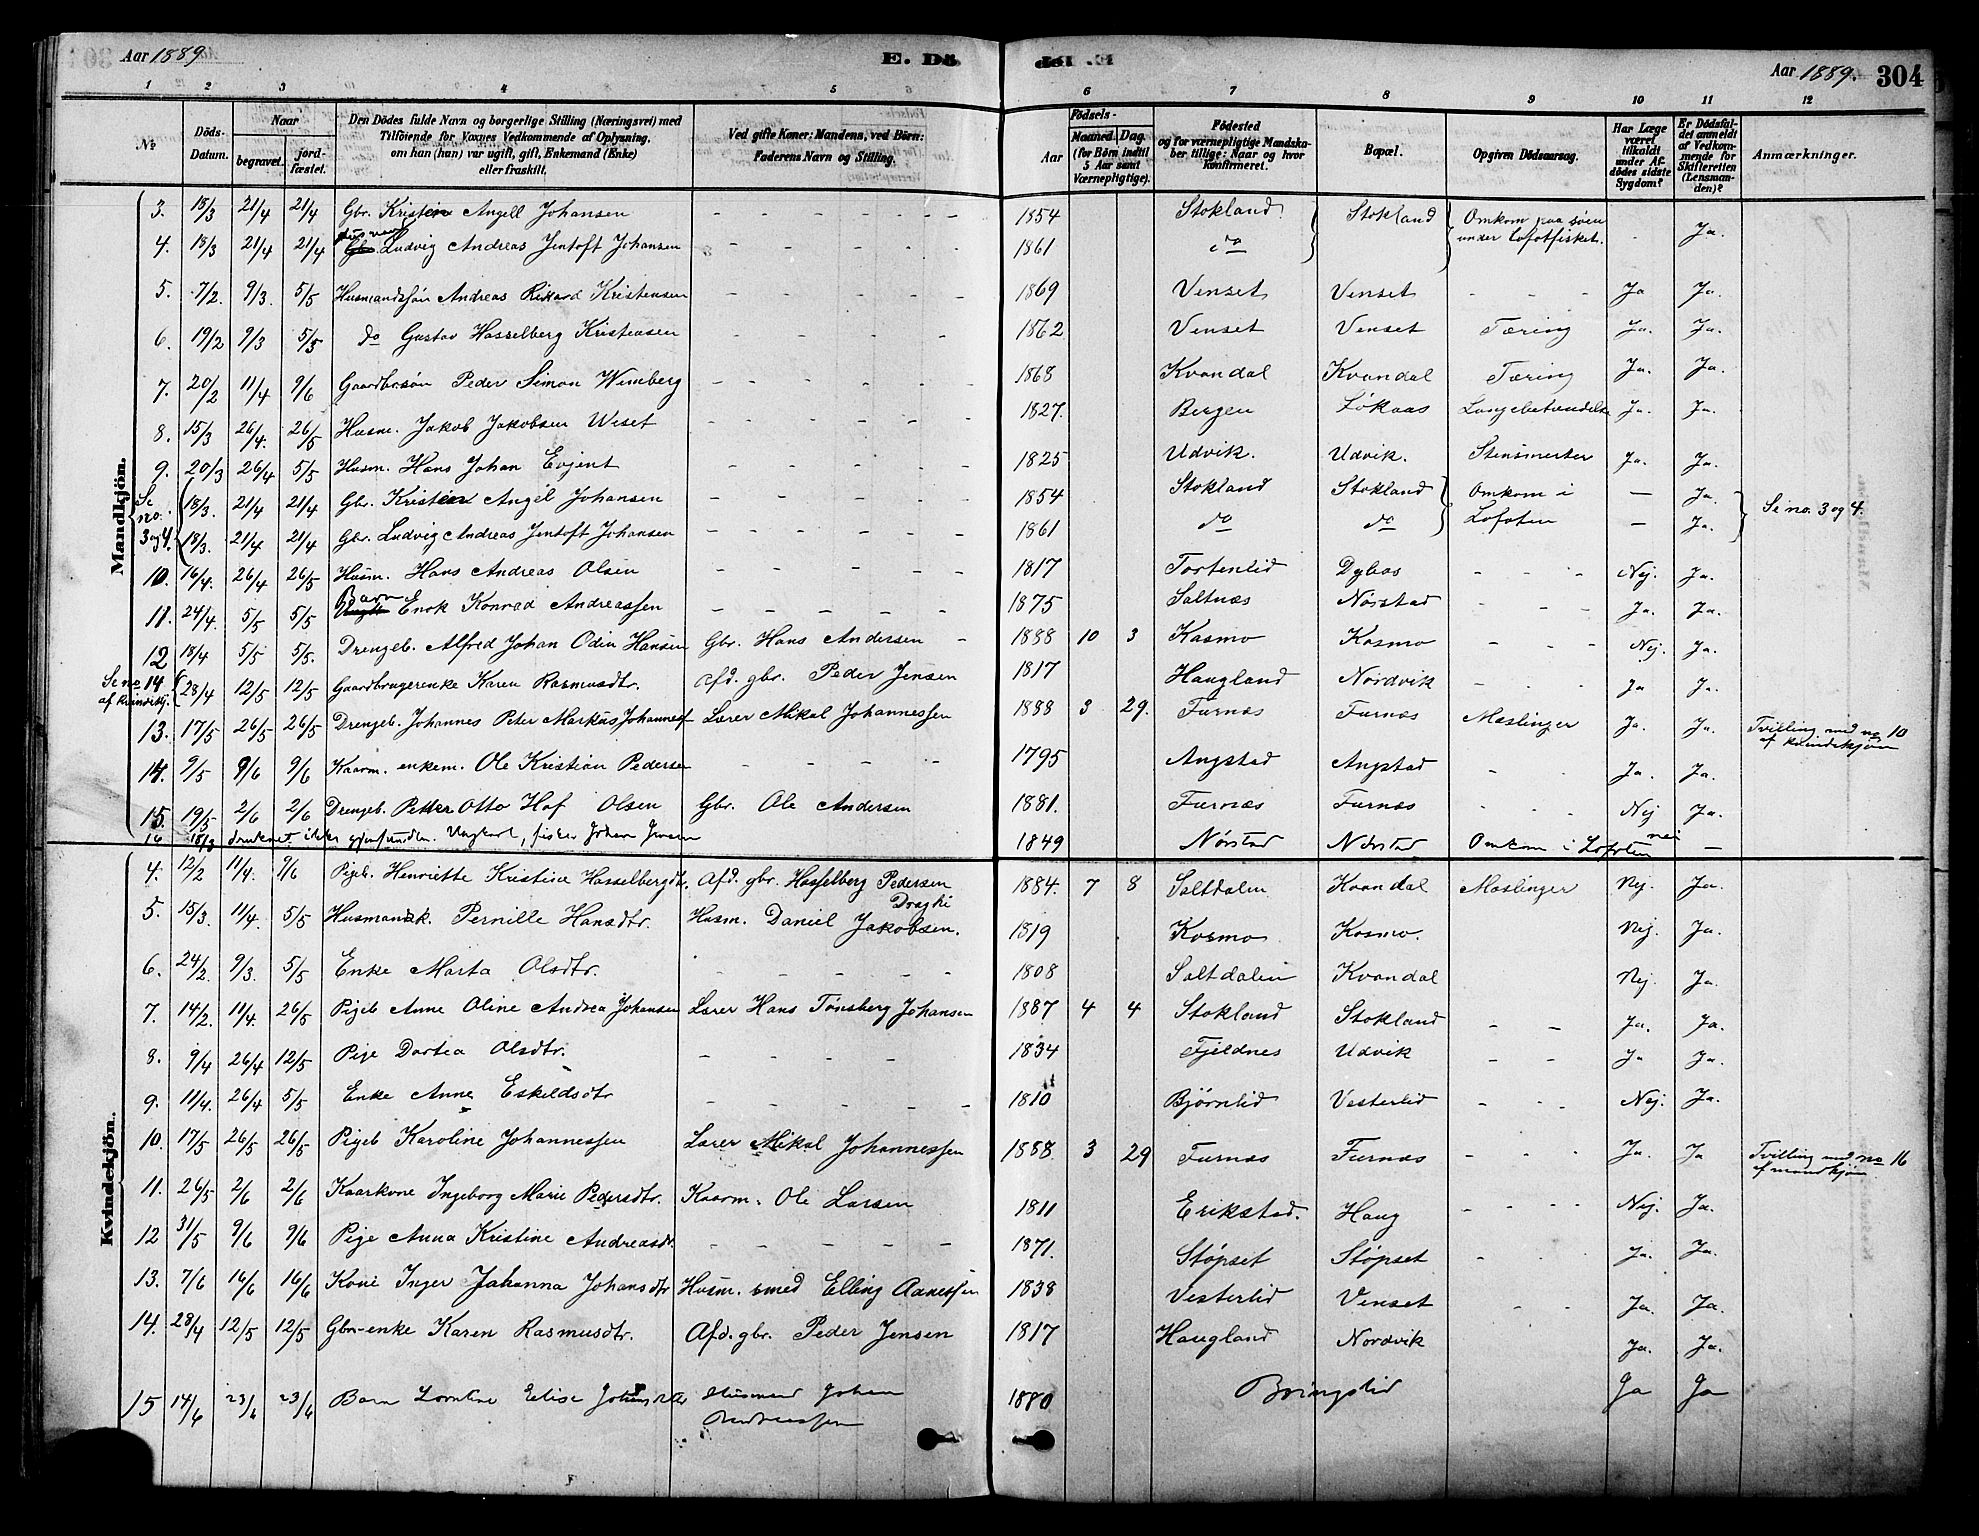 Aar 1889. E. Dö
Aar 1889. 304
1 2 3 4 5 6 7 8 9 10 11 12
No Döds-Datum. Naar begravet. jord-fæstet. Den Dödes fulde Navn og borgerlige Stilling (Næringsvei) med Tilföiende for Voxnes Vedkommende af Oplysning, om han (hun) var ugift, gift, Enkemand (Enke) eller fraskilt. Ved gifte Koner: Mandens, ved Börn: Faderens Navn og Stilling. Födsels- Aar Maaned. Dag. (for Börn indtil 5 Aar samt Værnepligtige). Födested og for værnepligtige Mandskaber tillige: Naar og hvor konfirmeret. Bopæl. Opgiven Dödsaarsag. Har Læge været tilkaldt under Afdödes sidste Sygdom? Er Dödsfaldet anmeldt af Vedkommende for Skifteretten (Lensmanden)? Anmærkninger.
Mandkjön.
3. 18/3 21/4 21/4 Gbr. Kristen Angell Johansen - - - 1854 Stokland. Stokland Omkom paa søen under Lofotfisket. - Ja.
4. 18/3 21/4 21/4 Gbr. Ludvig Andreas Jentoft Johansen - - - 1861 do
5. 7/2. 9/3. 5/5 Husmandssøn Andreas Rikard Kristensen - - - 1869 Venset Venset - - - Ja Ja.
6. 19/2 9/3 5/5 do Gustav Hasselberg Kristensen - - - 1862 Venset Venset Tæring Ja. Ja.
7. 20/2 11/4 9/6 Gaardbrsøn Peder Simon Wenberg - - - 1868 Kvandal Kvandal Tæring Ja. Ja.
8. 15/3 26/4. 26/5 Husm. Jakob Jakobsen Weset - - - 1827. Bergen Løkaas Lungebetændelse Ja. Ja.
9. 20/3 26/4 5/5 Husm. Hans Johan Evjent - - - 1825 Udvik. Udvik. Stensmerter Ja. Ja.
Se no. 3 og 4. 18/3. 21/4 21/4 Gbr. Kristen Angel Johansen - - - 1854 Stokland Stokland Omkom i Lofoten - Ja. Se no. 3 og 4.
18/3. 21/4 21/4 Gbr. Ludvig Andreas Jentoft Johansen - - - 1861 do do - Ja.
10. 16/4. 26/4 26/5 Husm. Hans Andreas Olsen - - - 1817 Tortenlid Dybos - - - Nej. Ja.
11. 24/4. 5/5 5/5 Barn Enok Konrad Andreassen - - - 1875 Saltnæs Nørstad - - - Ja. Ja.
12 18/4 5/5 5/5. Drengeb. Alfred Johan Odin Hansen Gbr. Hans Andersen - 1888 10 3 Kosmo Kosmo - - Nej. Ja.
Se no 14 af kvindekj. 28/4 12/5 12/5 Gaardbrugerenke Karen Rasmusdtr. Afd. gbr. Peder Jensen 1817 Haugland Nordvik - - Ja Ja.
13. 17/5 26/5 26/5 Drengeb. Johannes Peter Markus Johannes- Lærer Mikal Johannessen 1888 3 29. Furnæs Furnæs Mæslinger Ja. Ja. Tvilling med no 10 af kvindekjøn
14. 9/5 9/6 9/6 Kaarm. enkem. Ole Kristian Pedersen - - - 1795 Angstad Angstad - - Ja. Ja.
15. 19/5 2/6 2/6 Drengeb. Petter Otto Hof Olsen Gbr. Ole Andersen 1881. Furnæs Furnæs - - Nej Ja.
16 18/3 druknet. ikke gjenfunden. Ungkarl, fisker Johan Jensen 1849 Nørstad Nørstad Omkom i Lofoten nei -
Kvindekjön.
4. 12/2 11/4. 9/6 Pigeb. Henriette Kristine Hasselbergdtr. Afd. gbr. Hasselberg Pedersen 1884. 7 8 Saltdalen Kvandal Mæslinger Nej. Ja.
5. 15/3. 11/4. 5/5 Husmandsk. Pernille Hansdtr. Husm. Daniel Jakobsen. 1819 Kosmo Kosmo. Nej. Ja.
6. 24/2. 9/3. 5/5 Enke Marta Olsdtr. - - - 1808 Saltdalen Kvandal Nej. Ja.
7. 14/2. 11/4. 26/5 Pigeb Anne Oline Andrea Johansen Lærer Hans Tønsberg Johansen 1887 4 4 Stokland Stokland - - Ja. Ja.
8. 9/4 26/4 12/5 Pige Dortea Olsdtr. - - - 1834 Fjeldnes Udvik - - Ja Ja.
9. 11/4. 26/4 5/5 Enke Anne Eskeldsdtr - - - 1810 Bjørnlid Vesterlid - - - Nej. Ja.
10. 17/5 26/5 26/5 Pigeb Karoline Johannessen Lærer Mikal Johannessen 1888 3 29 Furnæs Furnæs - - Ja. Ja Tvilling med no 16 af mandkjøn.
11. 26/5 2/6 2/6 Kaarkone Ingeborg Marie Pedersdtr. Kaarm. Ole Larsen 1811 Erikstad. Haug - - - Nej. Ja.
12 31/5 9/6 9/6 Pige Anna Kristine Andreasdtr. - - - 1871. Støpset Støpset - - Ja. Ja.
13. 7/6 16/6 16/6 Kone Inger Johanna Johansdtr Husm. smed Elling Aanessen 1838 Vesterlid Venset - - Ja. Ja.
14. 28/4 12/5 12/5 Gbr-enke Karen Rasmusdtr. Afd. gbr. Peder Jensen 1817 Haugland Nordvik Ja. Ja.
15 14/6 23/6 23/6 Barn Elise Husmand Johan Andreassen 1880 Bringslid Ja Ja